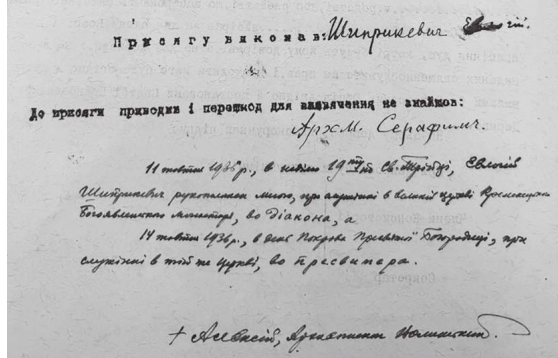 Присягу виконав: Шиприкевич Евлогій.
До присяги приводив і перешкод для висвячення не знайшов:
Архм. Серафим
11 жовтня 1936 р., в неділю 19 по Св. Тройці, Евлогій
Шиприкевич рукоположен мною, при служінні в церкві
Богоявленського монастиря, во діакона, а
14 жовтня 1936 р., в день Покрова Пресвятої Богородиці, при
служінні в тій же церкві, во пресвитера.
+ Алексій, Архиепископ Волинський.